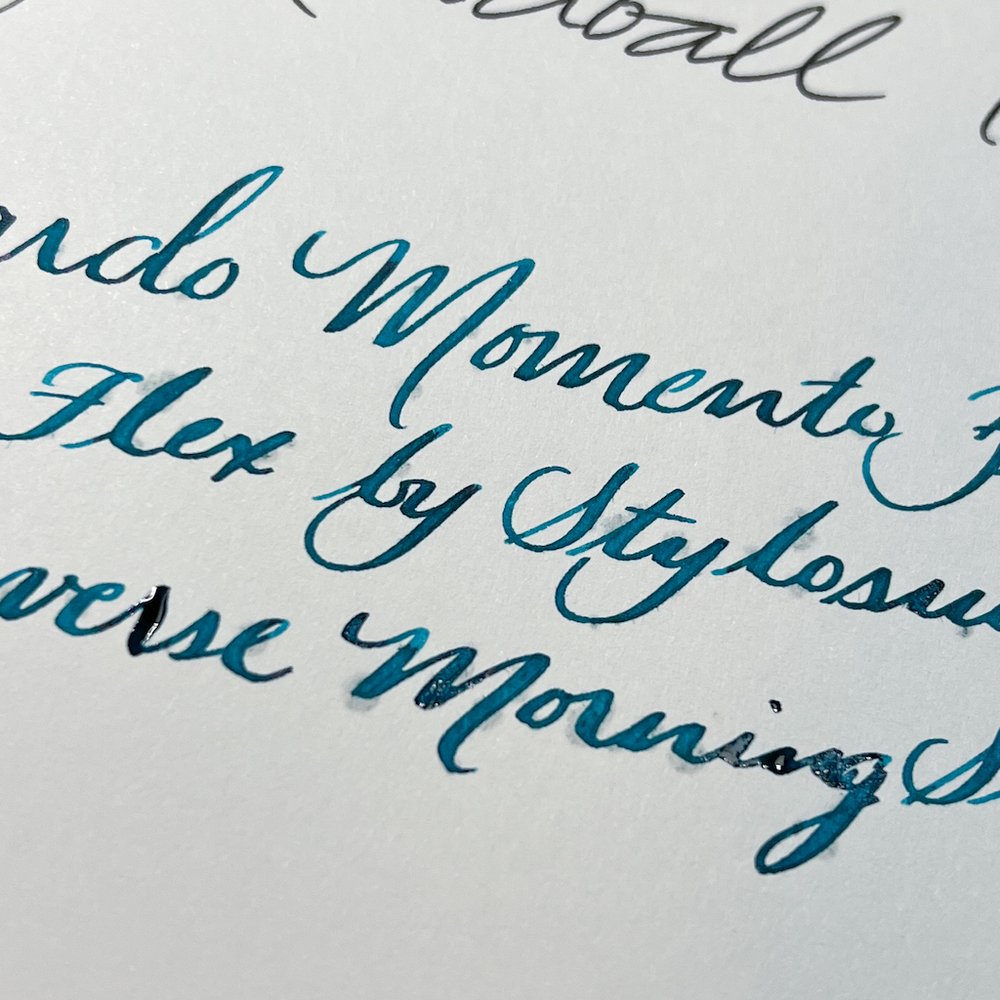 ardo Momento
Flex by Stylosu
verse Morning S